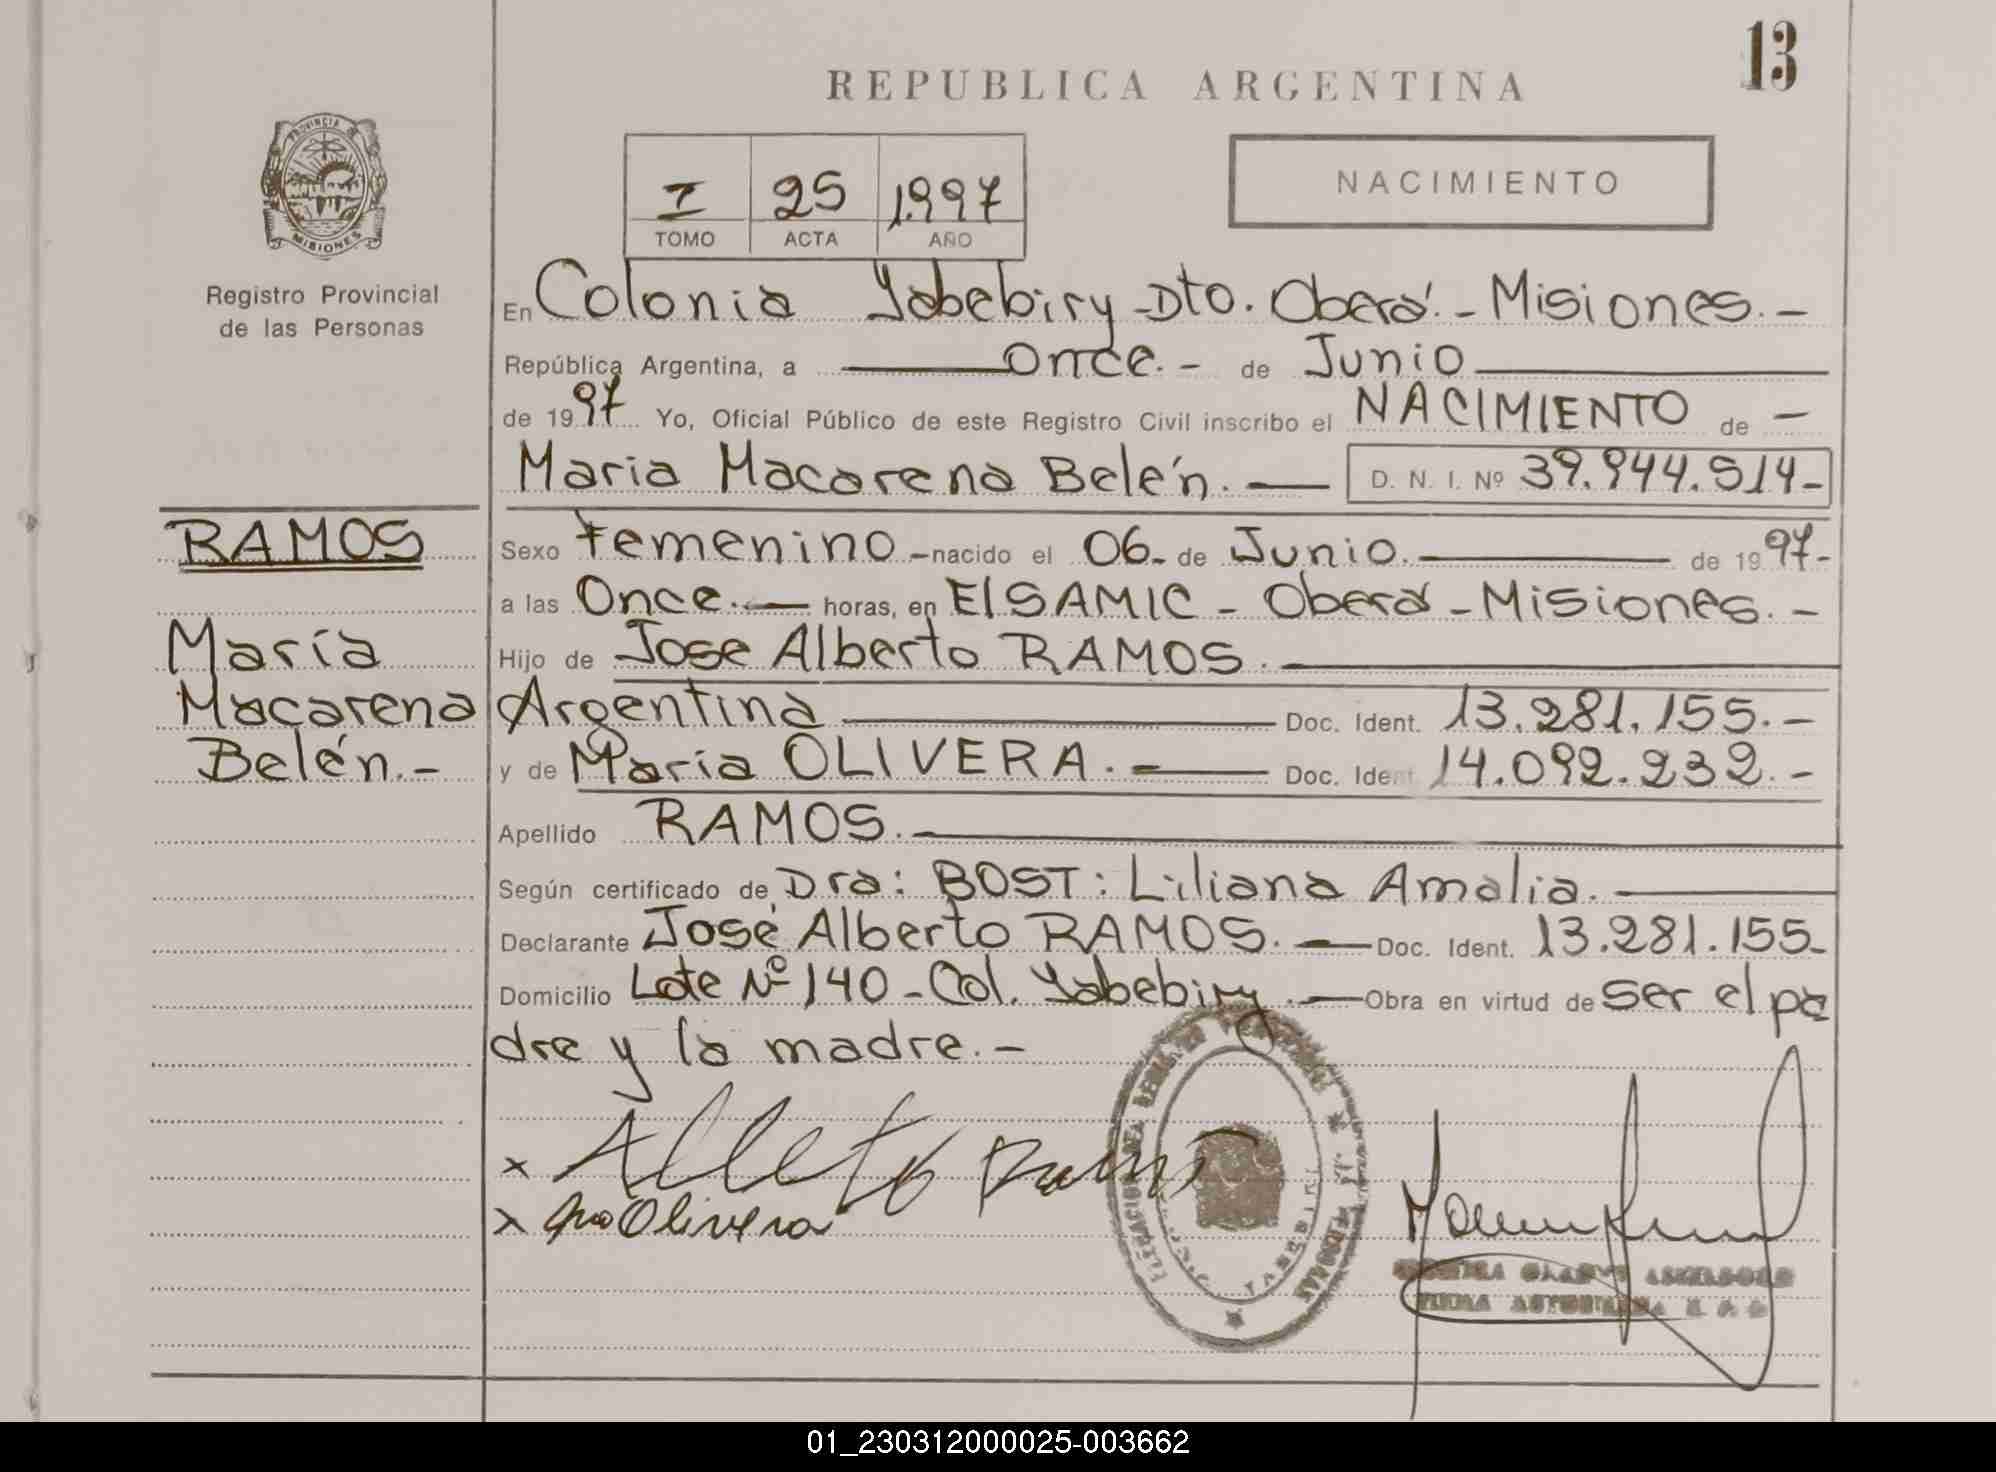 13
REPUBLICA ARGENTINA
PROVINCIA DE
MISIONES
Registro Provincial
de las Personas
I 25 1.997
TOMO ACTA AÑO
NACIMIENTO
En Colonia Yabebiry - Dto. Oberá. - Misiones. -
República Argentina, a once. - de Junio
de 1997 Yo, Oficial Público de este Registro Civil inscribo el NACIMIENTO de -
Maria Macarena Belén. D. N. I. Nº 39.944.514-
RAMOS
María
Macarena
Belén. -
Sexo femenino - nacido el 06 - de Junio. de 1997-
a las Once. horas, en El SAMIC - Oberá - Misiones. -
Hijo de Jose Alberto RAMOS.
Argentina Doc. Ident. 13.281.155. -
y de Maria OLIVERA. - Doc. Ident 14.092.232. -
Apellido RAMOS.
Según certificado de Dra: BOST: Liliana Amalia.
Declarante José Alberto RAMOS. Doc. Ident. 13.281.155-
Domicilio Lote Nº 140 - Col. Yabebiry. Obra en virtud de ser el pa
dre y la madre. -
x Alberto Ramos
x Olivera
YABEBIRI
01_230312000025-003662